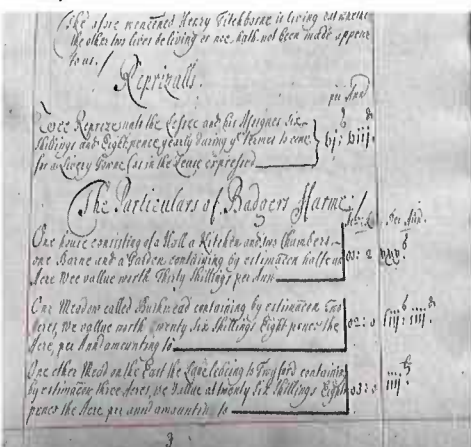 The afore mencioned Henry Titchborne is living but whether
the other two lives be living or noe, hath not been made appear
to us./
Reprizalls.
per Ann
s d
Wee Reprize unto the Lessee and his Assignes Six
Shillings and Eight pence yearly during ye Termes to come
for a Livery Gowne (as in the Lease expressed
vj: viij.
The Particulars of Badgers Farme./
per Ann.
One house consisting of a Hall a Kitchen and two Chambers
one Barne and a Garden containing by estimacon half an
Acre Wee vallue worth Thirty Shillings per Ann
00: 2
xxx.
One Meadow called Bushmead containing by estimacon Two
Acres, we vallue worth Twenty Six Shillings Eight pence the
Acre, per Annd amounting to
02: 0
liij: iiij.
One other Mead on the East the Lane leading to Twyford containing
by estimacon three Acres, we vallue at twenty Six Shillings Eight
pence the Acre per annd amounted to
03: 0
iiij.